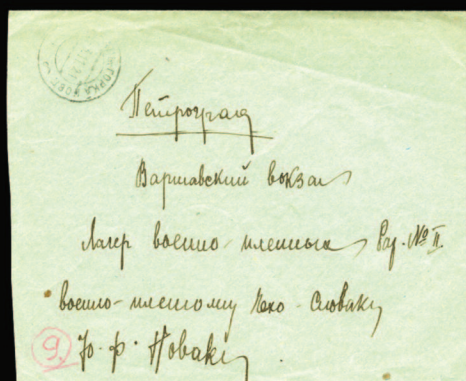 Петроград
Варшавский вокзал
Лагер военно-пленных Бар. № II.
военно-пленному Чехо-Словаку
9. Ю. Ф. Новаку